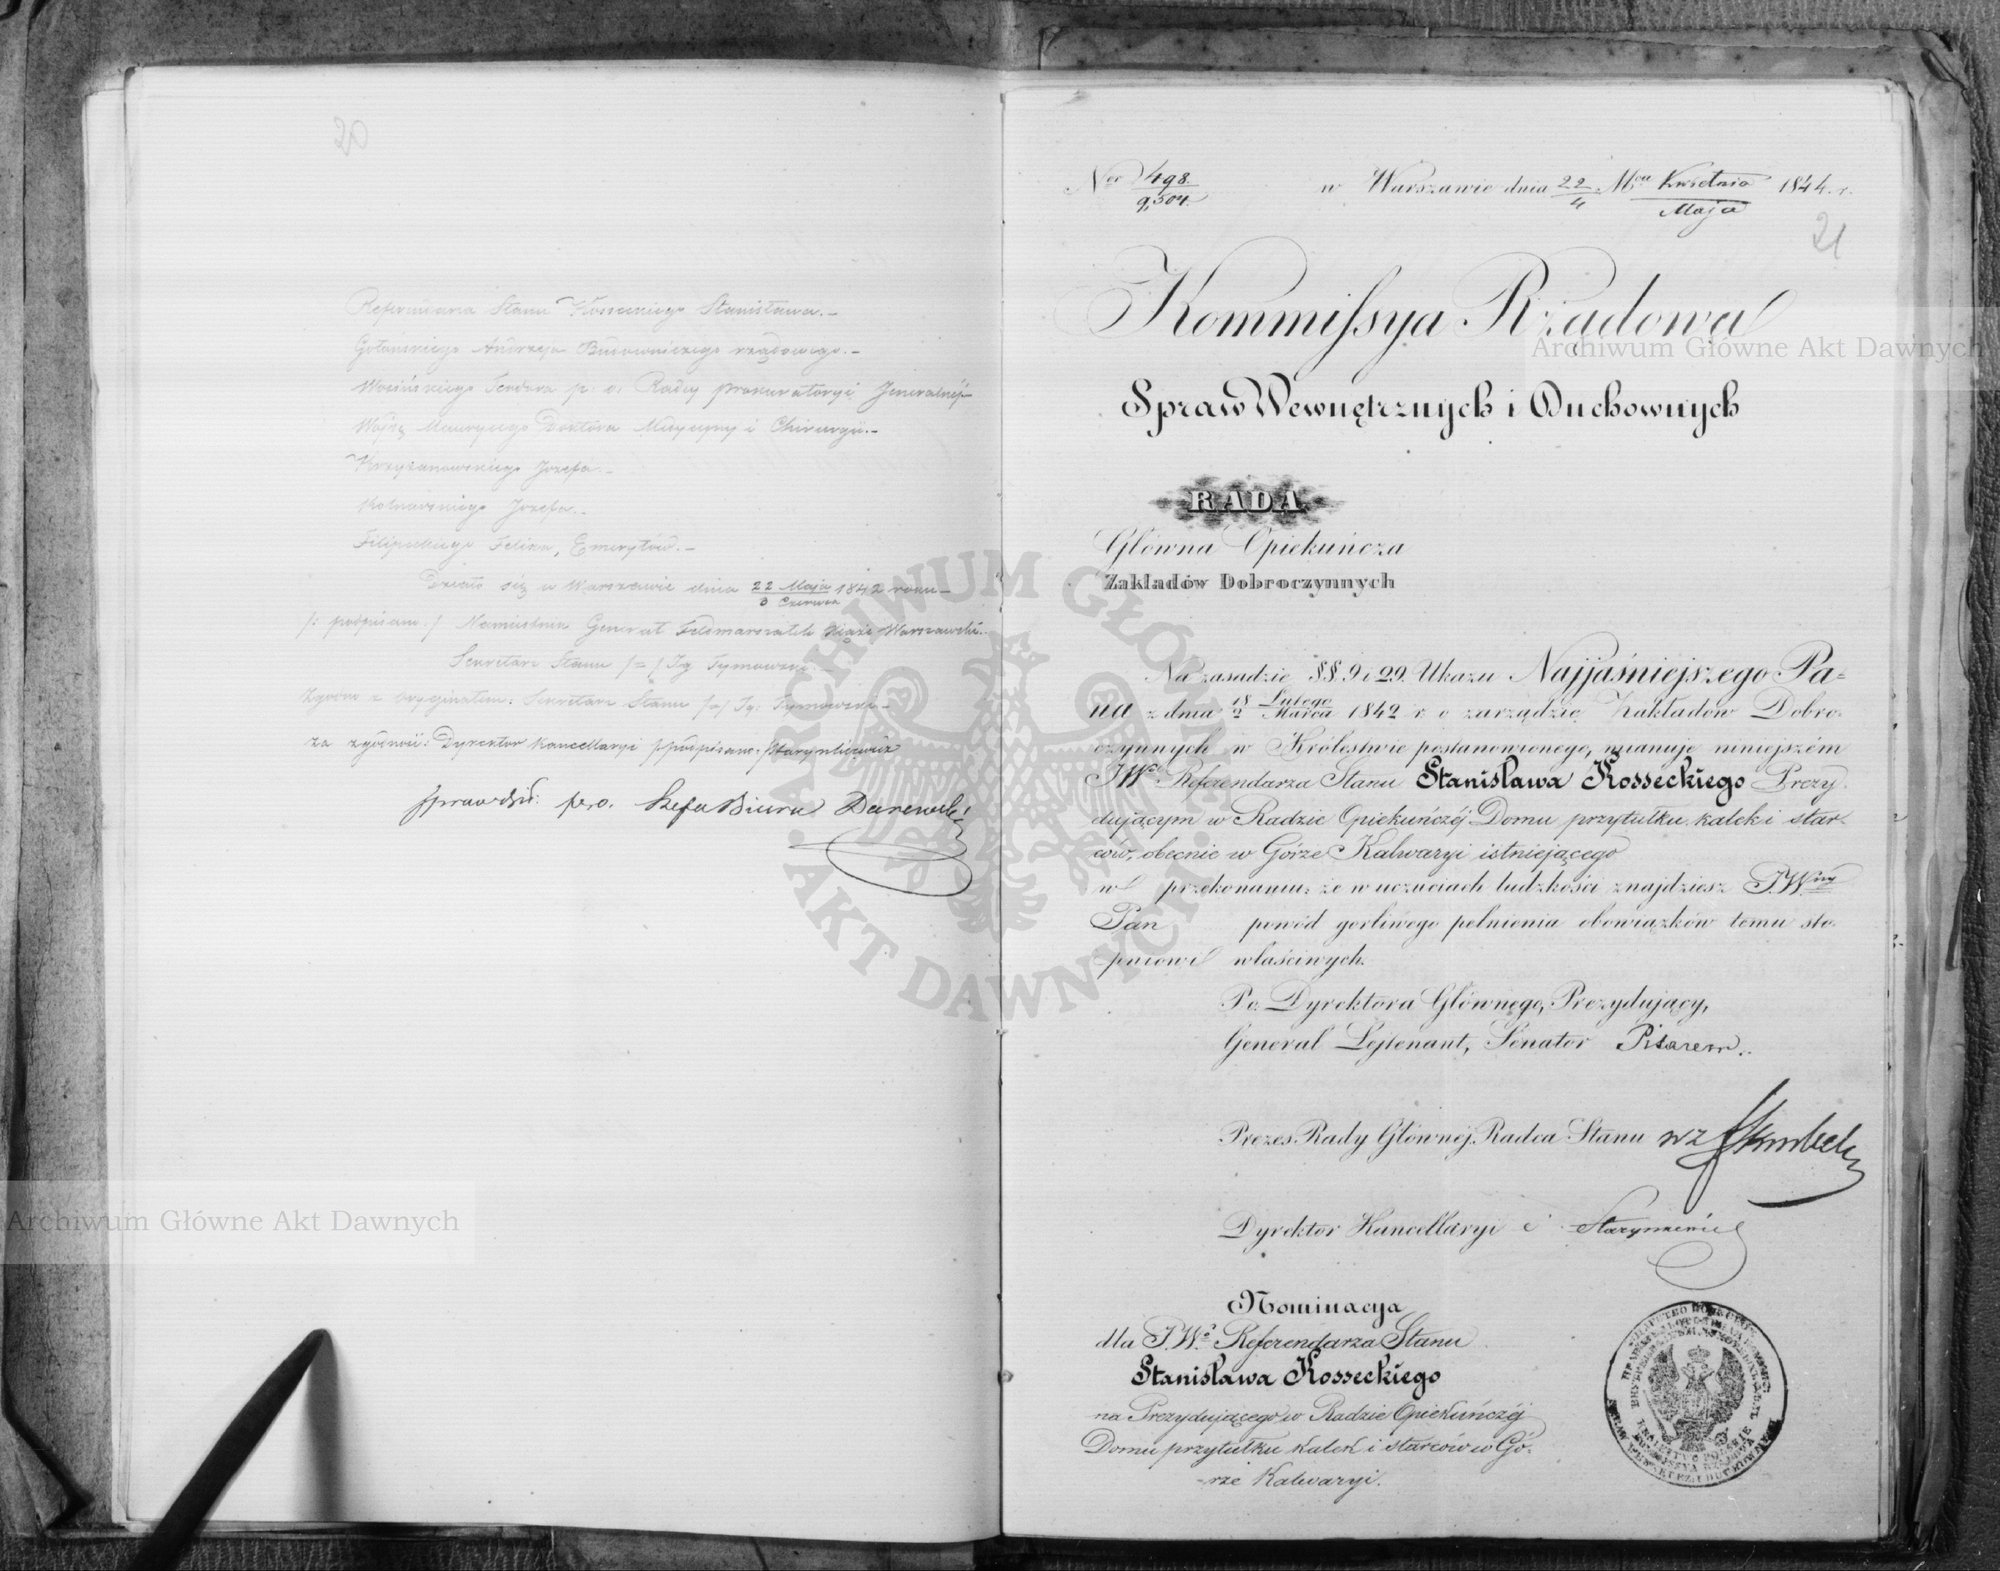 20
Referendarza Stanu Kosseckiego Stanisława.–
Gołońskiego Andrzeja Budowniczego rządowego.–
Wosińskiego Teodora p. o. Radcy Prokuratoryi Jeneralnéj–
Wojdę Maurycego Doktora Medycyny i Chirurgii.–
Krzyżanowskiego Józefa.–
Józefa.–
Filipeckiego Felixa, Emerytów.–
Działo się w Warszawie dnia 22 Maja / 3 Czerwca 1842 roku–
/: podpisano :/ Namiestnik Generał Feldmarszałek Xiąże Warszawski.
Sekretarz Stanu /–/ Ig Tymowski.–
Zgodno z oryginałem: Sekretarz Stanu /–/ Ig: Tymowski–
za zgodność: Dyrektor Kancellaryi /:podpisano:/ Starynkiewicz
Sprawdził: p.o. Szefa Biura Darewski
Ner 498 / 9,504. w Warszawie dnia 22/4 Mca Kwietnia / Maja 1844. r.
21
Kommissya Rządowa
Spraw Wewnętrznych i Duchownych
RADA
Główna Opiekuńcza
Zakładów Dobroczynnych
Na zasadzie §§. 9 i 29. Ukazu Najjaśniejszego Pa=
na z dnia 18 Lutego / 2 Marca 1842 r. o zarządzie Zakładów Dobro-
czynnych w Królestwie postanowionego, mianuje niniejszém
JWo Referendarza Stanu Stanisława Kosseckiego Prezy-
dującym w Radzie Opiekuńczéj Domu przytułku kalek i star-
ców, obecnie w Górze Kalwaryi istniejącego
w przekonaniu: że w uczuciach ludzkości znajdziesz J.Wny
Pan powód gorliwego pełnienia obowiązków temu sto-
pniowi właściwych.
Po. Dyrektora Głównego, Prezydujący,
Generał Lejtenant, Senator Pisarew..
Prezes Rady Głównéj Radca Stanu wz
Dyrektor Kancellaryi Starynkiewicz
Nominacya
dla J.Wo Referendarza Stanu
Stanisława Kosseckiego
na Prezydującego w Radzie Opiekuńczéj
Domu przytułku kalek i starców w Gó-
-rze Kalwaryi.
ARCHIWUM GŁÓWNE
AKT DAWNYCH
Archiwum Główne Akt Dawnych
Archiwum Główne Akt Dawnych